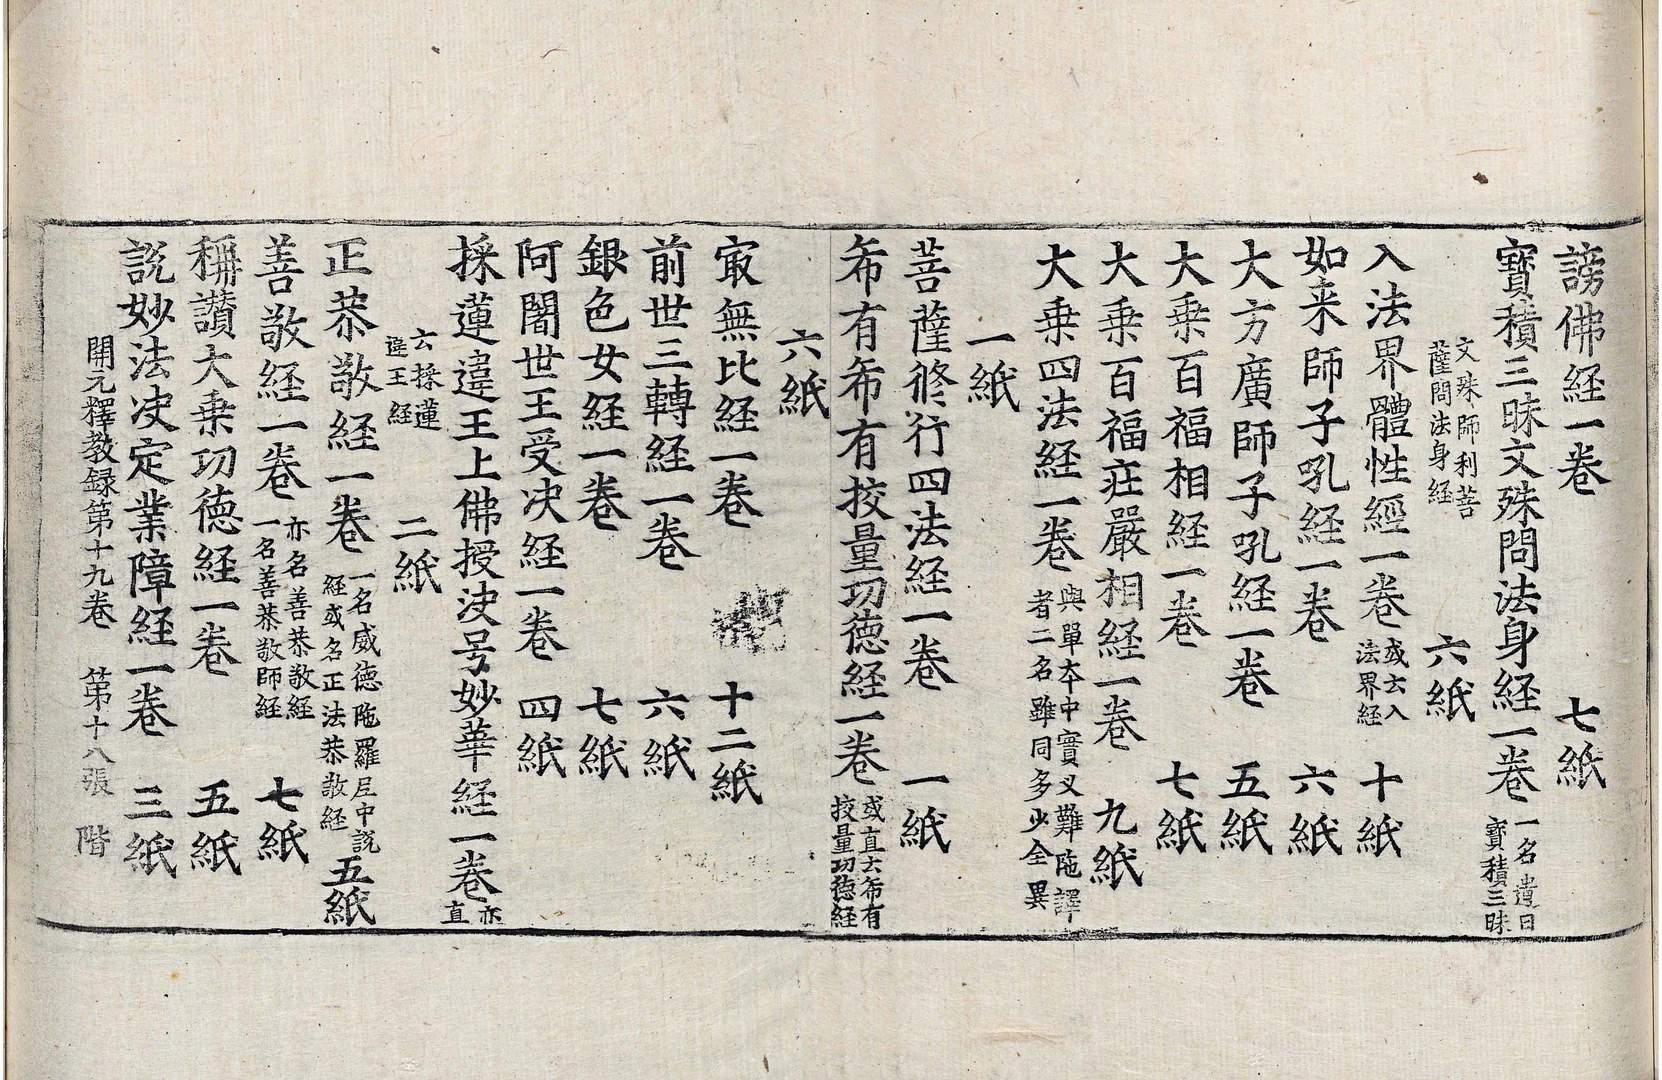 謗佛経一卷 七紙
寳積三昧文殊問法身経一卷 一名遺日寳積三昧
文殊師利菩薩問法身経 六紙
入法界體性經一卷 或云入法界経 十紙
如来師子吼経一卷 六紙
大方廣師子吼経一卷 五紙
大乗百福相経一卷 七紙
大乗百福莊嚴相経一卷 九紙
大乗四法経一卷 與單本中實叉難陁譯者二名雖同多少全異
一紙
菩薩修行四法経一卷 一紙
希有希有挍量功德経一卷 或直云希有挍量功德経
六紙
㝡無比経一卷 十二紙
前世三轉経一卷 六紙
銀色女経一卷 七紙
阿闍世王受决経一卷 四紙
採蓮違王上佛授决号妙華経一卷 亦直
云採蓮違王経 二紙
正恭敬経一卷 一名威德陁羅尼中説経或名正法恭敬経 五紙
善敬経一卷 亦名善恭敬経一名善恭敬師経 七紙
稱讃大乗功德経一卷 五紙
說妙法决定業障経一卷 三紙
開元釋教録第十九卷 第十八張 階